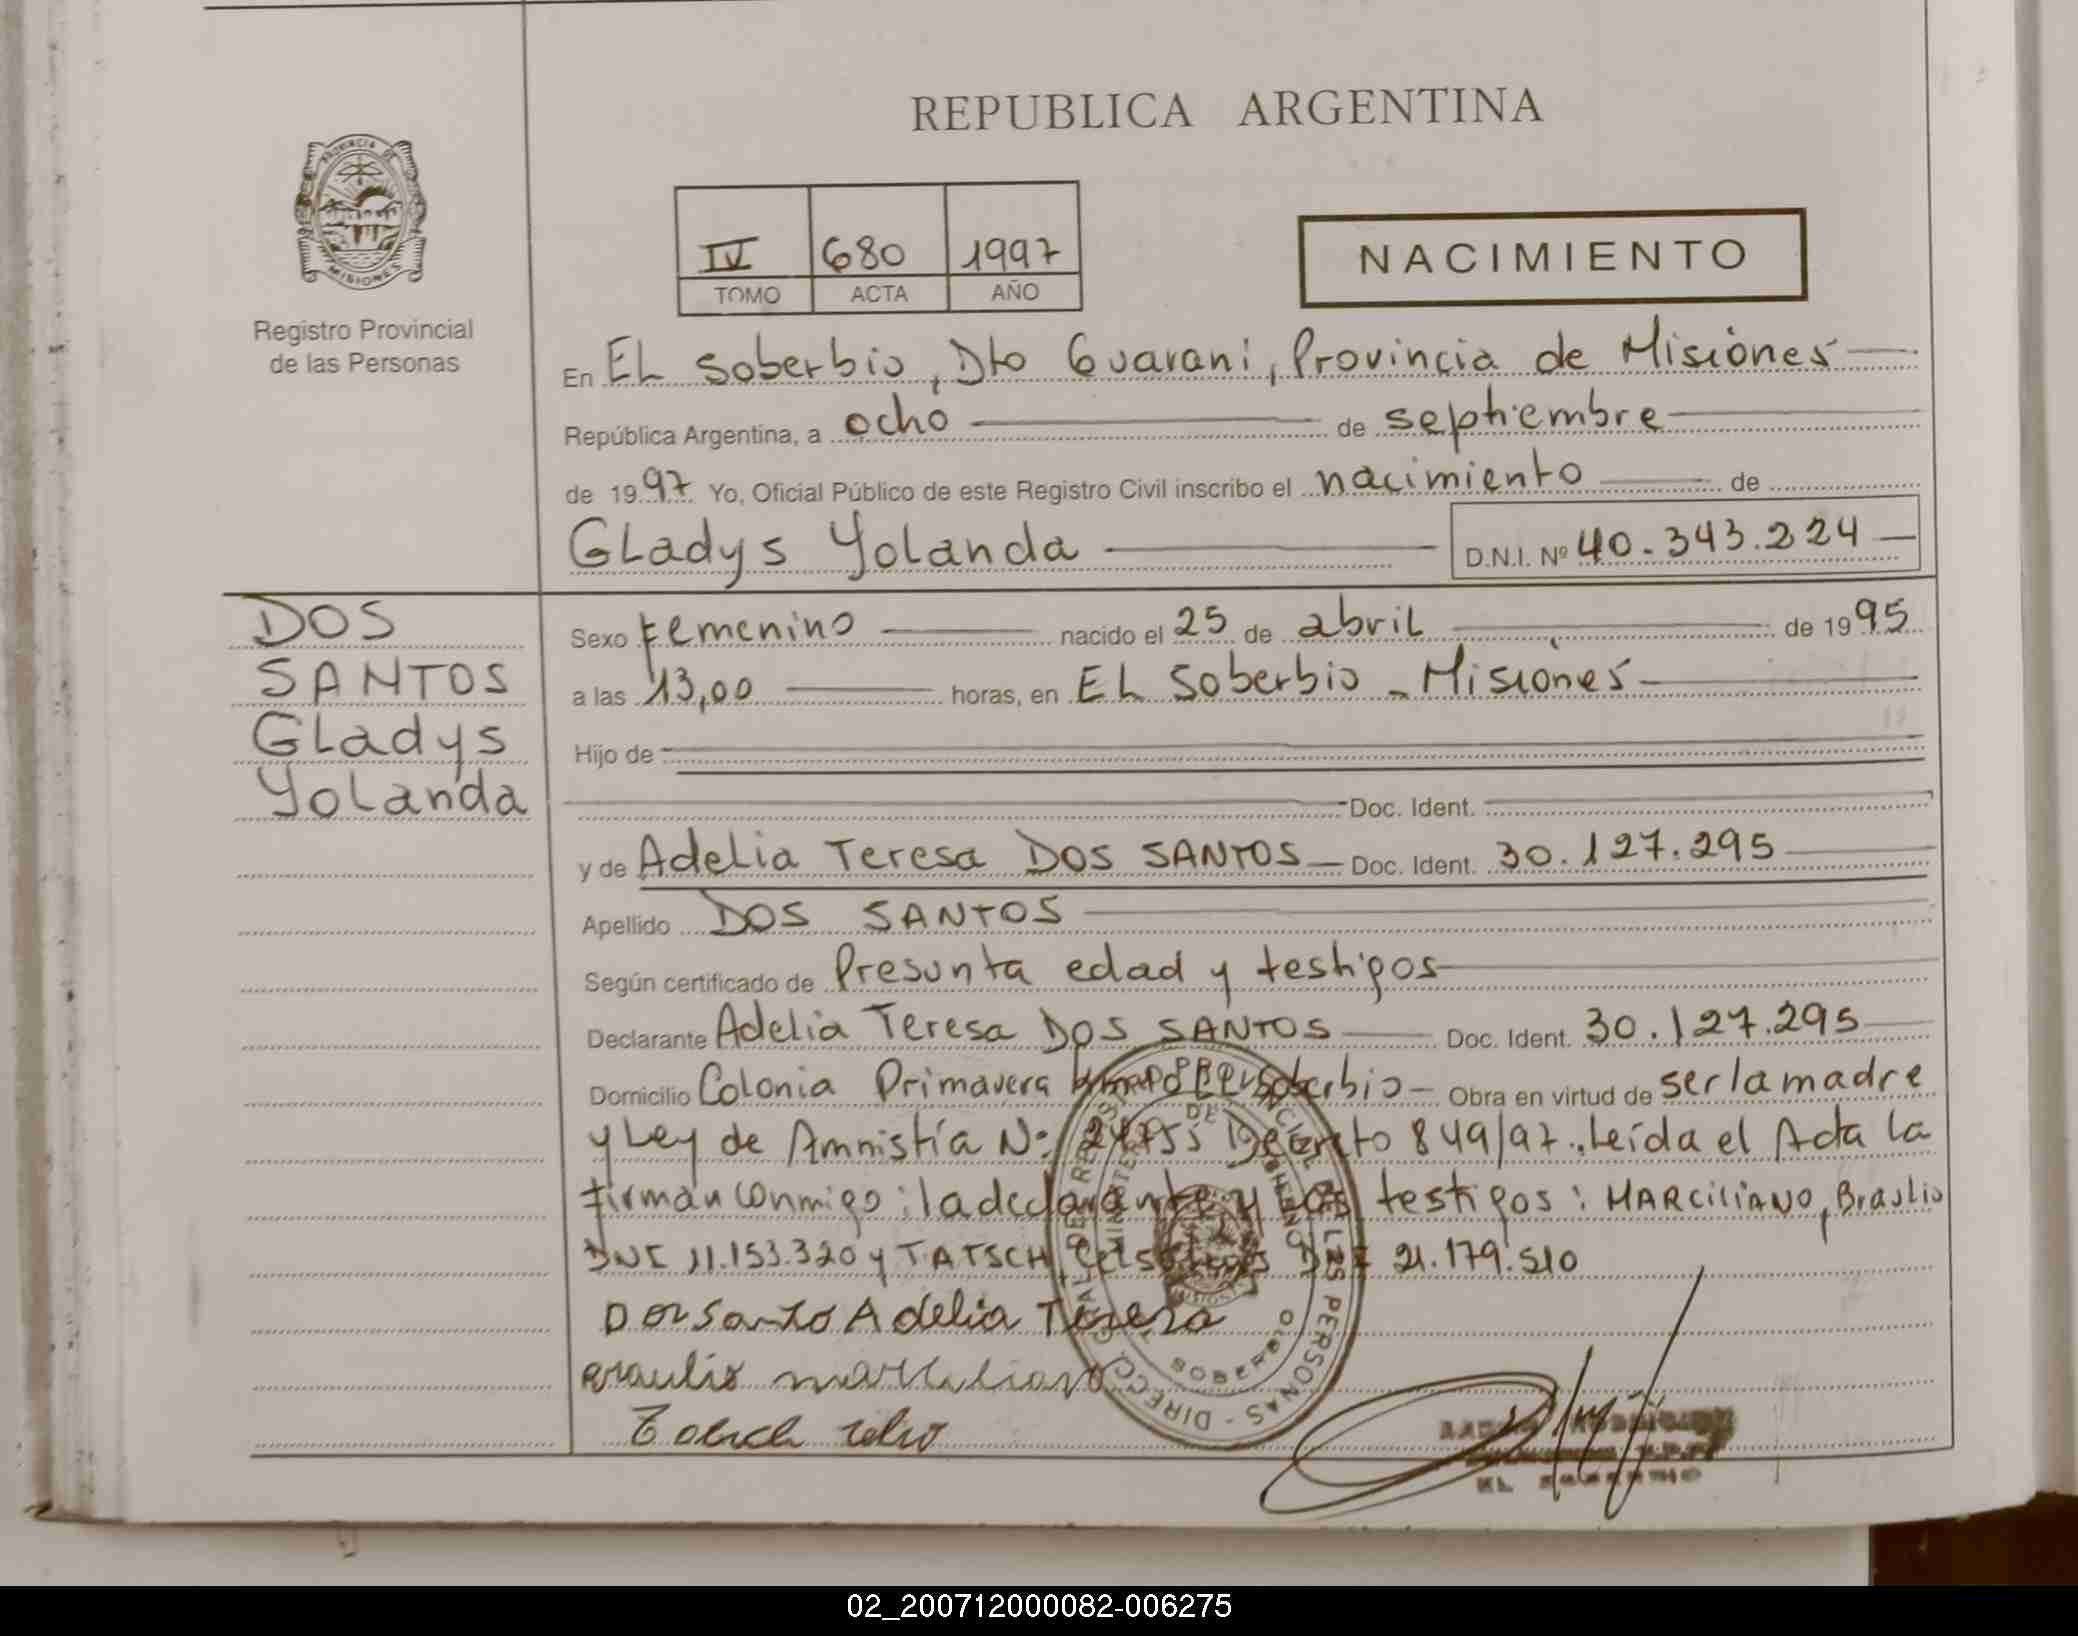 REPUBLICA ARGENTINA
PROVINCIA DE
MISIONES
Registro Provincial
de las Personas
IV 680 1997
TOMO ACTA AÑO
NACIMIENTO
En EL Soberbio, Dto Guarani, Provincia de Misiones
República Argentina, a ocho de septiembre
de 1997 Yo, Oficial Público de este Registro Civil inscribo el nacimiento de
Gladys Yolanda D.N.I. Nº 40.343.224
DOS
SANTOS
Gladys
Yolanda
Sexo femenino nacido el 25 de abril de 1995
a las 13,00 horas, en EL Soberbio - Misiones
Hijo de
Doc. Ident.
y de Adelia Teresa DOS SANTOS Doc. Ident. 30.127.295
Apellido DOS SANTOS
Según certificado de Presunta edad y testigos
Declarante Adelia Teresa DOS SANTOS Doc. Ident. 30.127.295
Domicilio Colonia Primavera Soberbio - Obra en virtud de ser la madre
y Ley de Amnistía Nº 24755 Decreto 849/97. Leída el Acta la
firman conmigo: la declarante y los testigos: MARCILIANO, Braulio
DNI 11.153.320 y TATSCH, DNI 21.179.510
Dos Santo Adelia Teresa
Braulio marciliano
DE LAS PERSONAS - DIRECC. GRAL.
SOBERBIO
EL SOBERBIO
02_200712000082-006275